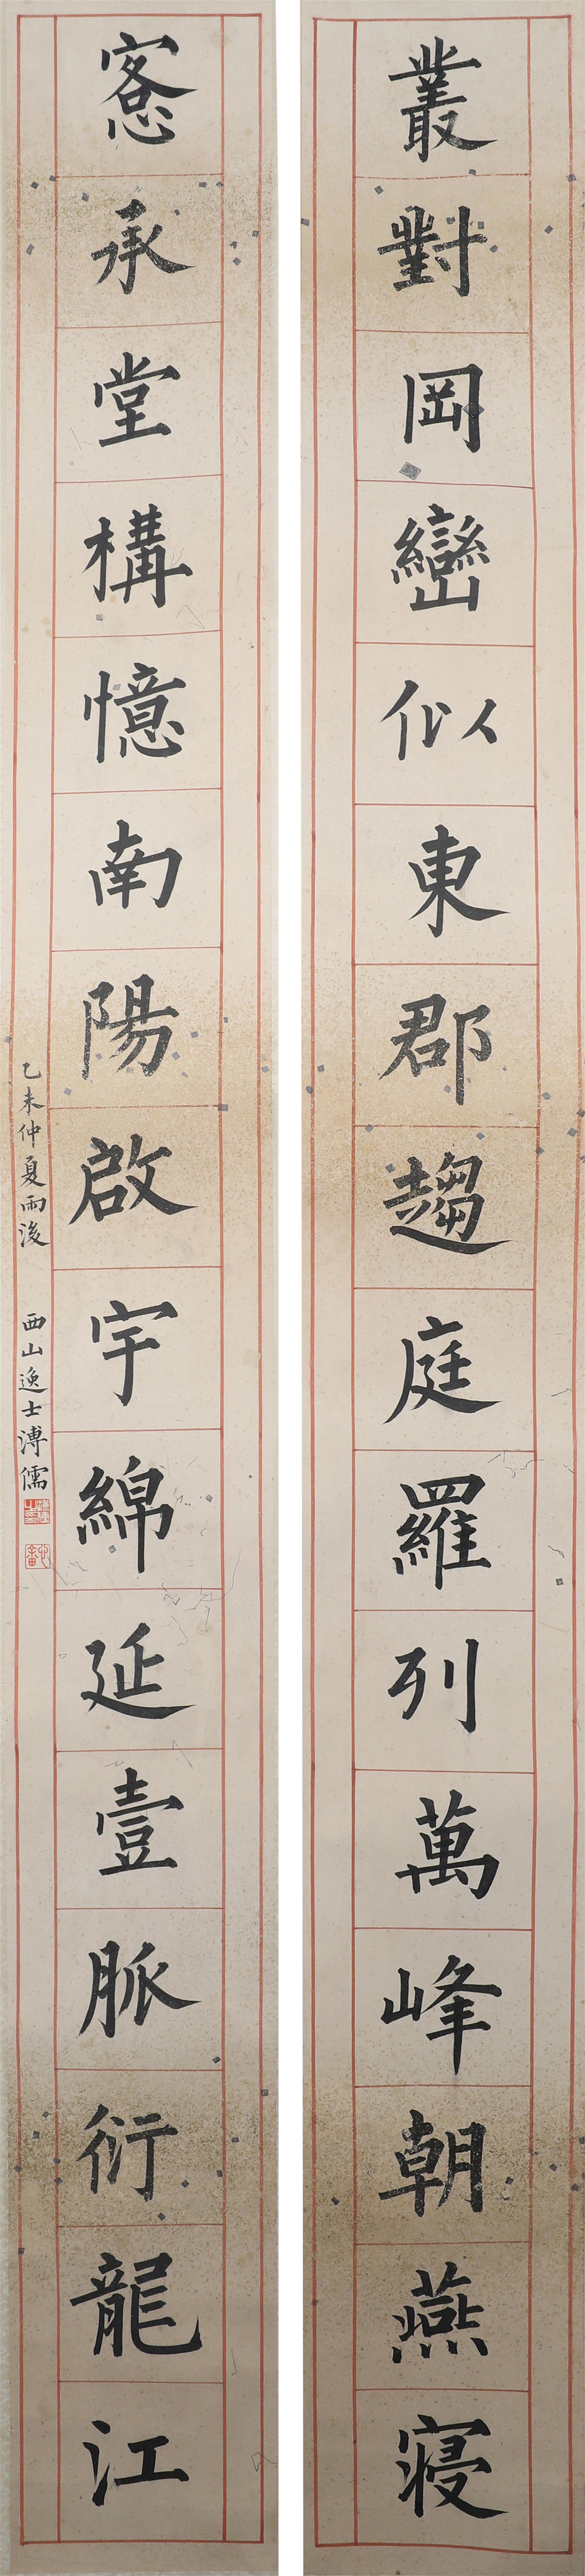 叢對岡巒似東郡趨庭羅列萬峰朝燕寝
愙承堂構憶南陽啟宇綿延壹脈衍龍江
乙未仲夏雨後 西山逸士溥儒